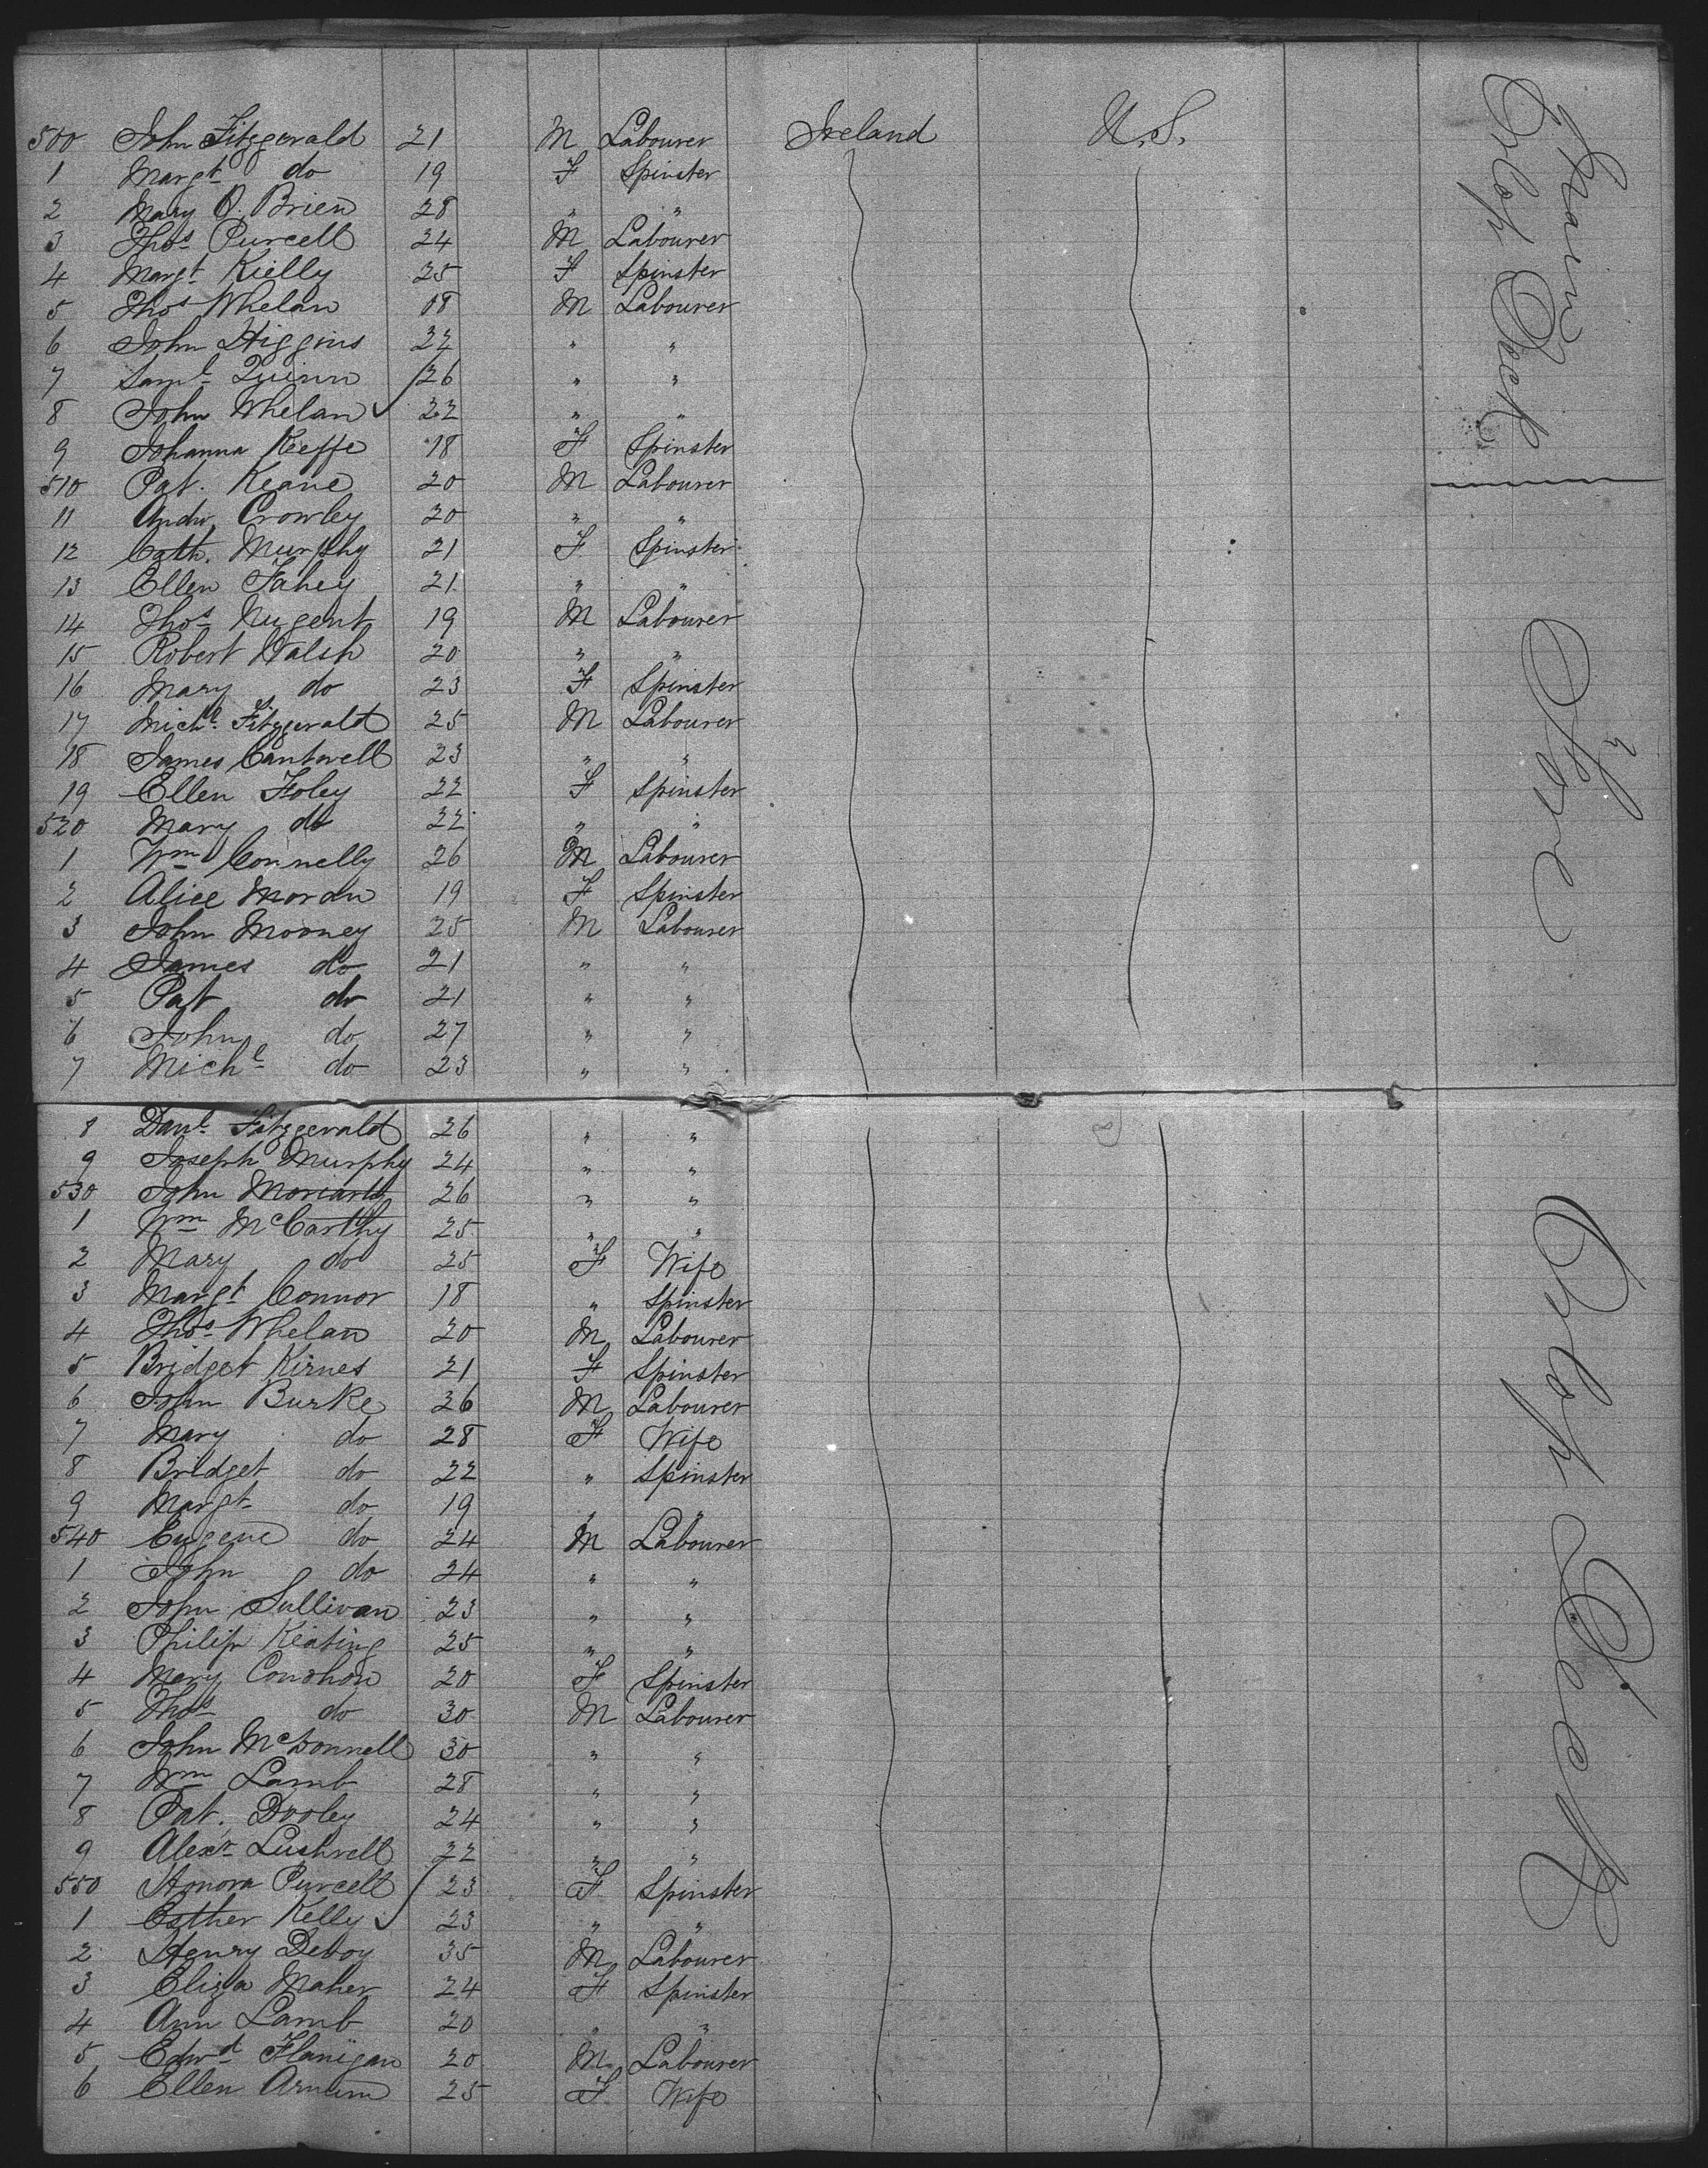 500 John Fitzgerald 21 M Labourer Ireland U.S.
1 Margt do 19 F Spinster
2 Mary O. Brien 28 " "
3 Thos Purcell 24 M Labourer
4 Margt Kielly 25 F Spinster
5 Thos Whelan 18 M Labourer
6 John Higgins 22 " "
7 Saml Quinn 26 " "
8 John Whelan 22 " "
9 Johanna Keeffe 18 F Spinster
510 Pat. Keane 20 M Labourer
11 Andw Crowley 20 " "
12 Cath. Murphy 21 F Spinster
13 Ellen Fahey 21 " "
14 Thos Nugent 19 M Labourer
15 Robert Walsh 20 " "
16 Mary do 23 F Spinster
17 Michl Fitzgerald 25 M Labourer
18 James Cantwell 23 " "
19 Ellen Foley 22 F Spinster
520 Mary do 22 " "
1 Wm Connelly 26 M Labourer
2 Alice Moran 19 F Spinster
3 John Mooney 25 M Labourer
4 James do 21 " "
5 Pat do 21 " "
6 John do 27 " "
7 Michl do 23 " "
8 Danl Fitzgerald 26 " "
9 Joseph Murphy 24 " "
530 John Moriarty 26 " "
1 Wm McCarthy 25 " "
2 Mary do 25 F Wife
3 Margt Connor 18 " Spinster
4 Thos Whelan 20 M Labourer
5 Bridget Kirnes 21 F Spinster
6 John Burke 26 M Labourer
7 Mary do 28 F Wife
8 Bridget do 22 " Spinster
9 Margt do 19 " "
540 Eugene do 24 M Labourer
1 John do 24 " "
2 John Sullivan 23 " "
3 Philip Keating 25 " "
4 Mary Conohon 20 F Spinster
5 Thos do 30 M Labourer
6 John McDonnell 30 " "
7 Wm Lamb 28 " "
8 Pat. Dooley 24 " "
9 Alexr 22 " "
550 Honora Purcell 23 F Spinster
1 Esther Kelly 23 " "
2 Henry Deboy 35 M Labourer
3 Eliza Maher 24 F Spinster
4 Ann Lamb 20 " "
5 Edwd Flanigan 20 M Labourer
6 Ellen Arnum 25 F Wife
Main
Orlop Deck
Orlop Deck